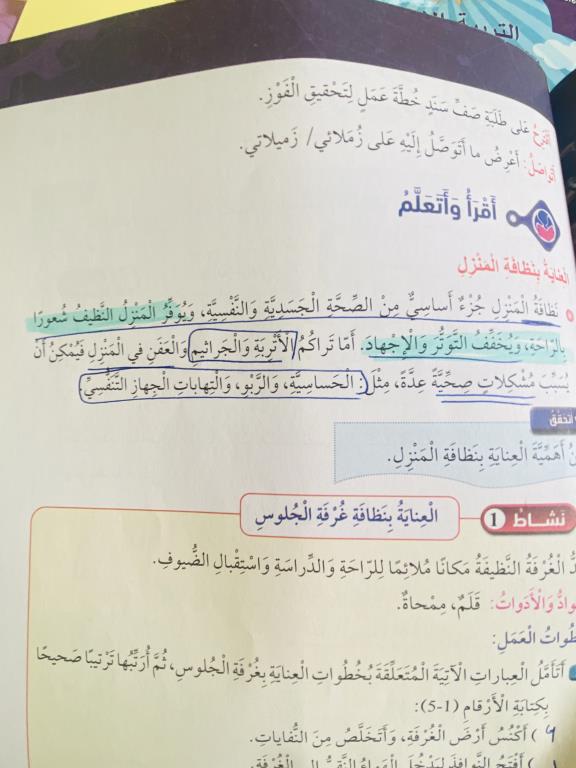 التربية
أَقْتَرِحُ عَلى طَلَبَةِ صَفِّ سَنَدٍ خُطَّةَ عَمَلٍ لِتَحْقيقِ الْفَوْزِ.
أَتَواصَلُ: أَعْرِضُ ما أَتَوَصَّلُ إِلَيْهِ عَلى زُمَلائي/ زَميلاتي.
أَقْرَأُ وَأَتَعَلَّمُ
الْعِنايَةُ بِنَظافَةِ الْمَنْزِلِ
نَظافَةُ الْمَنْزِلِ جُزْءٌ أَساسِيٌّ مِنَ الصِّحَّةِ الْجَسَدِيَّةِ وَالنَّفْسِيَّةِ، وَيُوَفِّرُ الْمَنْزِلُ النَّظيفُ شُعورًا
بِالرّاحَةِ، وَيُخَفِّفُ التَّوَتُّرَ وَالْإِجْهادَ. أَمّا تَراكُمُ الْأَتْرِبَةِ وَالْجَراثيمِ وَالْعَفَنِ في الْمَنْزِلِ فَيُمْكِنُ أَنْ
يُسَبِّبَ مُشْكِلاتٍ صِحِّيَّةً عِدَّةً، مِثْلَ: الْحَساسِيَّةِ، وَالرَّبْوِ، وَالْتِهاباتِ الْجِهازِ التَّنَفُّسِيِّ.
أَتَحَقَّقُ
أَهَمِّيَّةَ الْعِنايَةِ بِنَظافَةِ الْمَنْزِلِ.
نَشاطٌ 1 الْعِنايَةُ بِنَظافَةِ غُرْفَةِ الْجُلوسِ
الْغُرْفَةُ النَّظيفَةُ مَكانًا مُلائِمًا لِلرّاحَةِ وَالدِّراسَةِ وَاسْتِقْبالِ الضُّيوفِ.
وَالْأَدَواتُ: قَلَمٌ، مِمْحاةٌ.
الْعَمَلِ:
أَتَأَمَّلُ الْعِباراتِ الْآتِيَةَ الْمُتَعَلِّقَةَ بِخُطُواتِ الْعِنايَةِ بِغُرْفَةِ الْجُلوسِ، ثُمَّ أُرَتِّبُها تَرْتيبًا صَحيحًا
بِكِتابَةِ الْأَرْقامِ (1-5):
) أَكْنُسُ أَرْضَ الْغُرْفَةِ، وَأَتَخَلَّصُ مِنَ النُّفاياتِ.
) أَفْتَحُ النَّوافِذَ لِيَدْخُلَ الْهَواءُ النَّقِيُّ إِلى الْغُرْفَةِ.